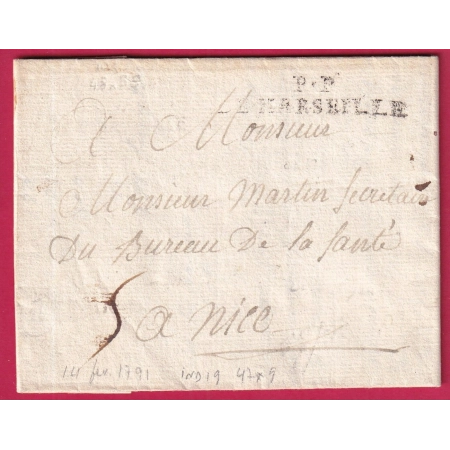 P.P
MARSEILLE
A Monsieur
Monsieur Martin Secretaire
Du Bureau De la Santé
5 a Nice
14 fev. 1791 IND 19